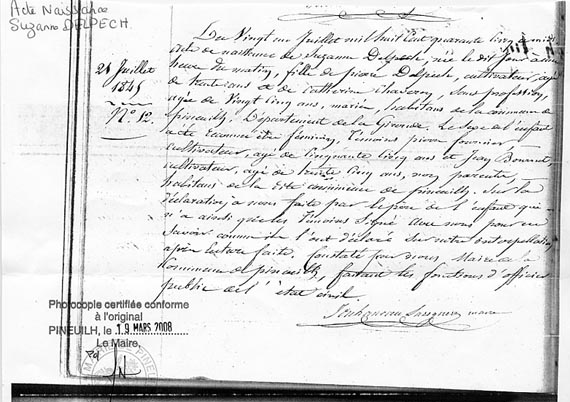 Acte Naissance
Suzanne DELPECH.
21 Juillet
1845
N° 12
Du Vingt un Juillet mil huit cent quarante cinq à midi
acte de naissance de Suzanne Delpech, née le dit jour à une
heure du matin, fille de pierre Delpech, cultivateur, agé
de trente ans et de Catherine, sans profession,
agée de Vingt Cinq ans, mariés, habitans de la commune de
pineuilh, Département de la Gironde. Le Sexe de l'enfant
a été Reconnu être féminin, Témoins pierre
cultivateur, agé de Cinquante Cinq ans et Jean
cultivateur, agé de trente Cinq ans, non parents,
habitans de la dite commune de pineuilh. Sur la
déclaration à nous faite par le père de l'enfant qui
n'a ainsi que les Témoins Signé avec nous pour ne
Savoir comme ils l'ont déclaré Sur notre interpellation
après lecture faite, Constaté par nous, Maire de la
Commune de pineuilh, faisant les fonctions d'officier
public de l'état civil.
maire
Photocopie certifiée conforme
à l'original
PINEUILH, le 19 MARS 2008
Le Maire,